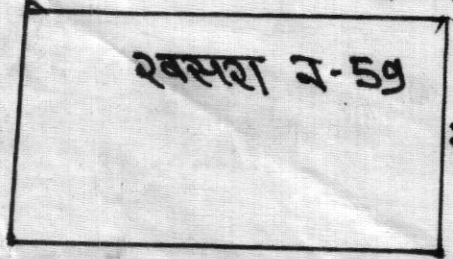 खसरा न-59